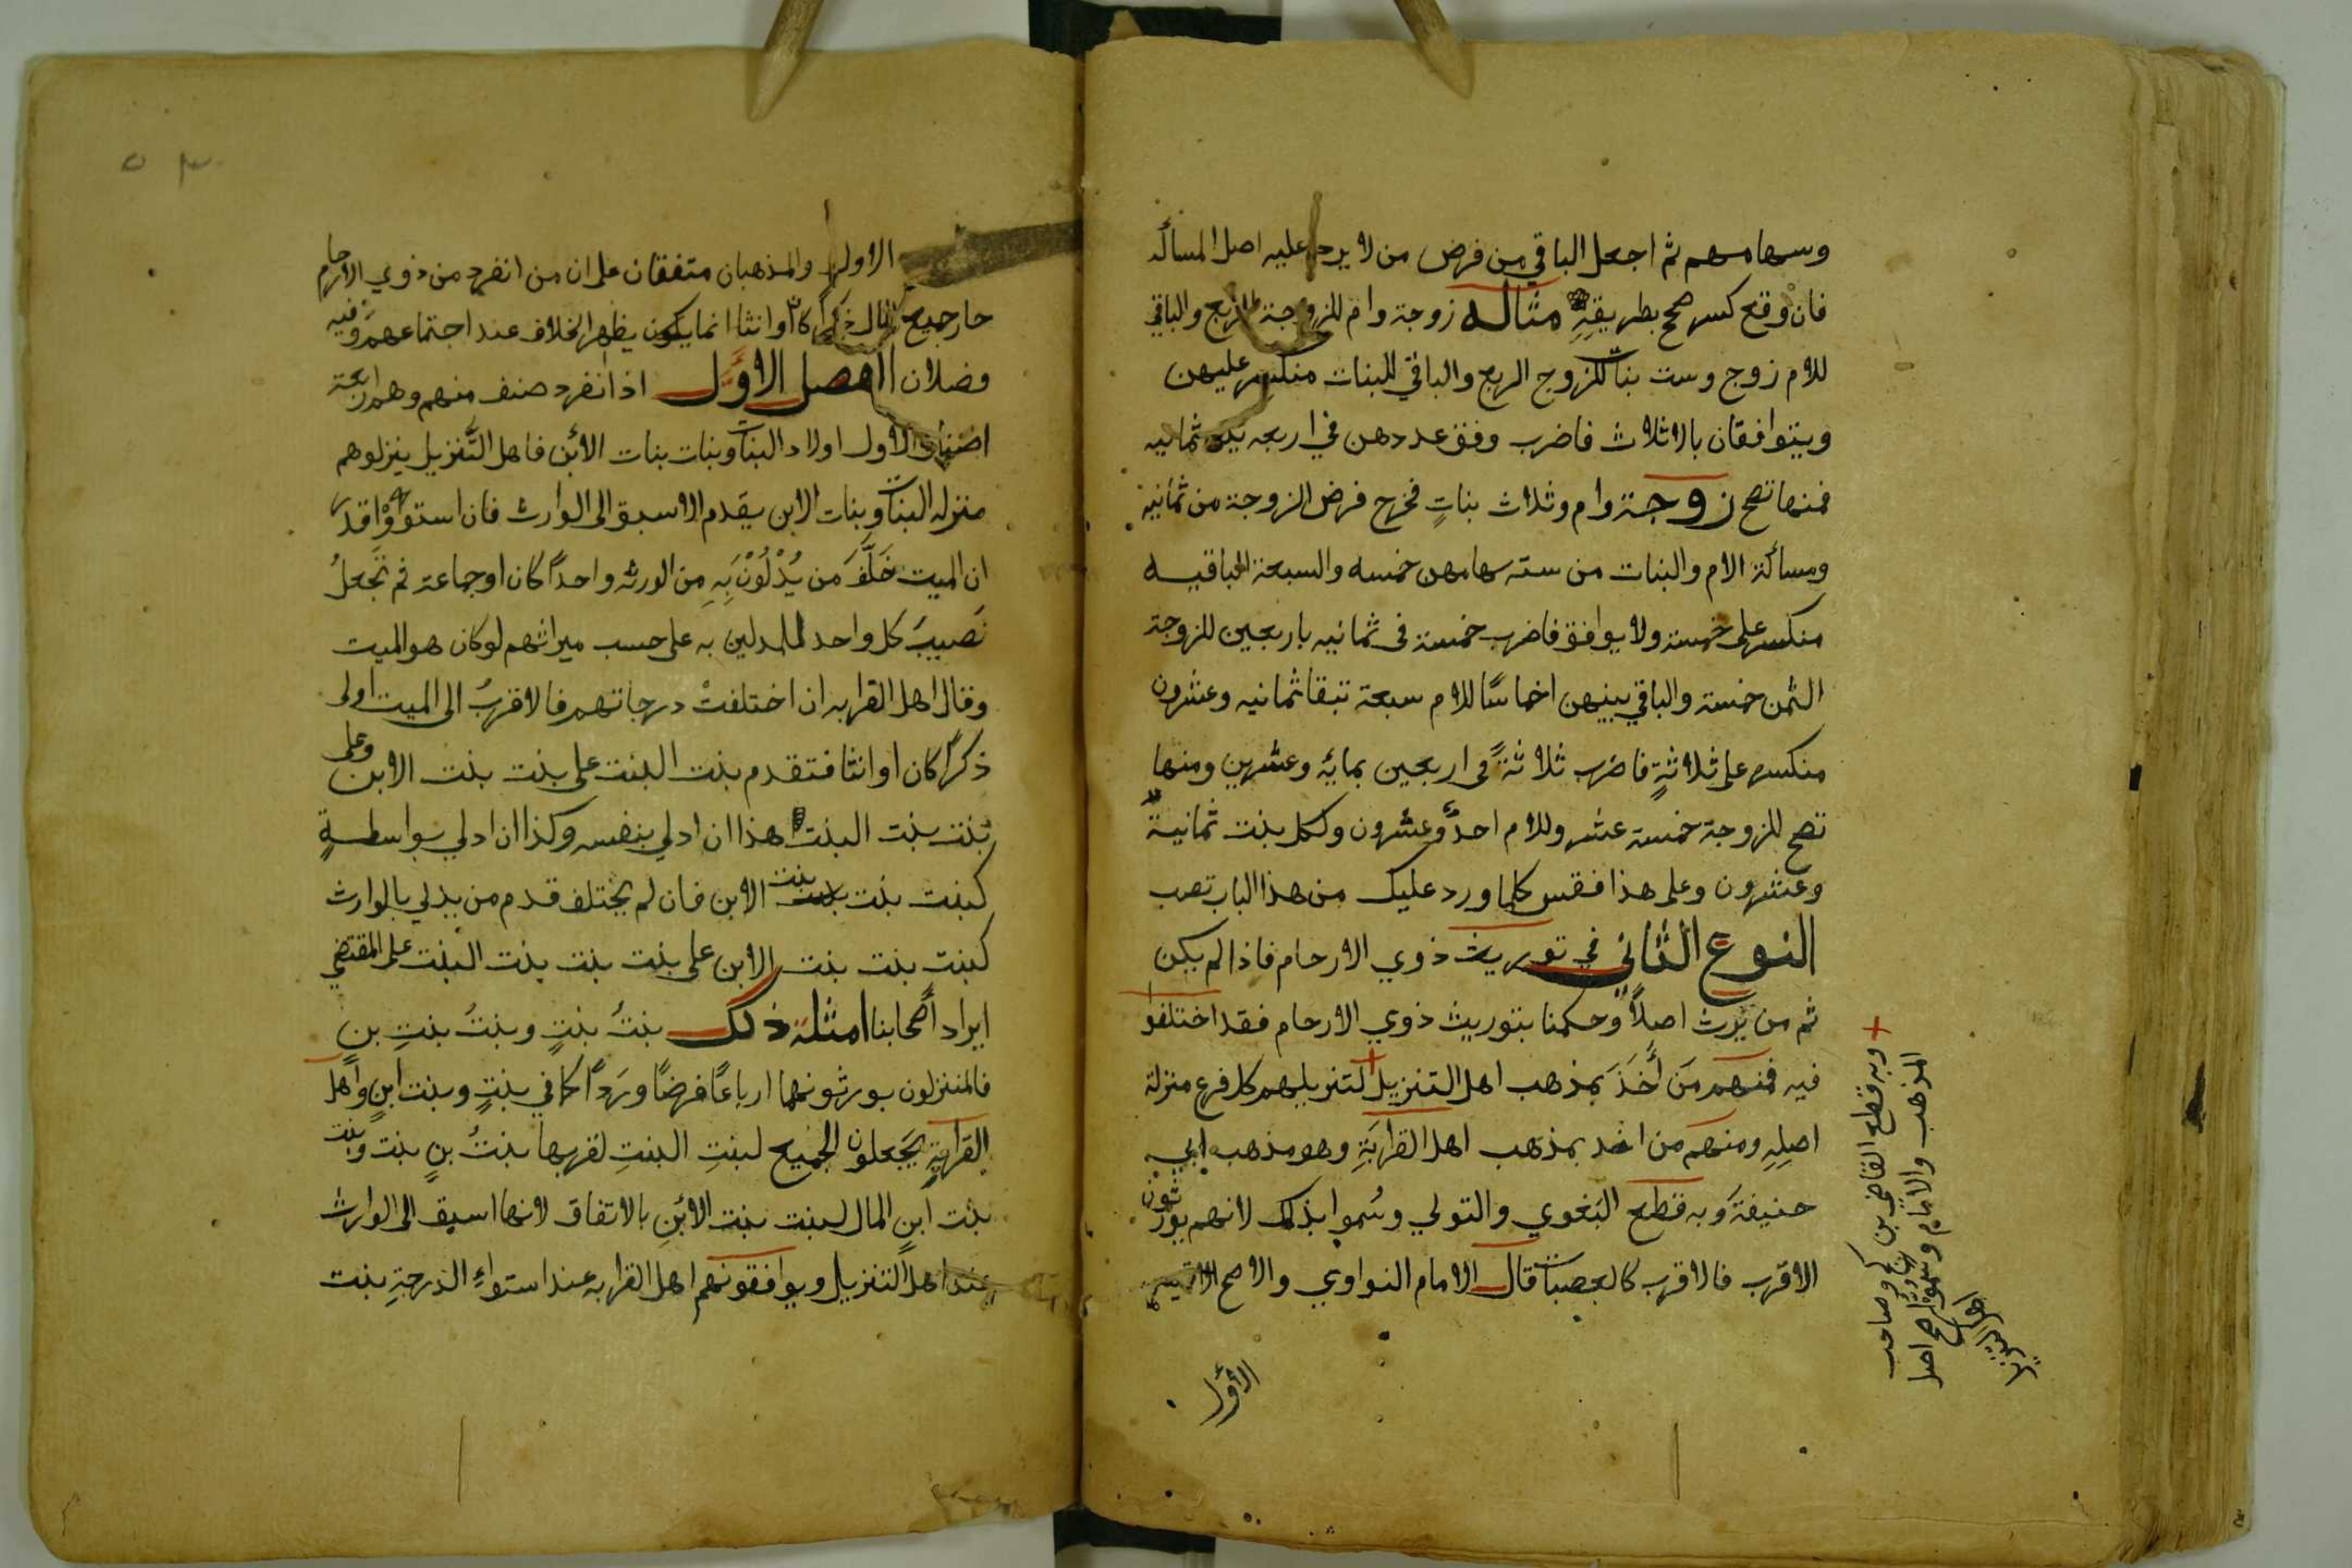 وسهامهم ثم اجعل الباقي من فرض من لا يرد عليه اصل المسألة
فان وقع كسر صحح بطريقه مثاله زوجة وام للزوجة الربع والباقي
للام زوج وست بنات للزوج الربع والباقي للبنات منكسر عليهن
ويتوافقان بالاثلاث فاضرب وفق عددهن في اربعه يكن ثمانيه
فمنها تصح زوجة وام وثلاث بناتٍ مخرج فرض الزوجة من ثمانية
ومسألة الام والبنات من سته سهامهن خمسه والسبعة الباقيه
منكسر على خمسة ولا يوافق فاضرب خمسة في ثمانيه باربعين للزوجة
الثمن خمسة والباقي بينهن اخماسًا للام سبعة تبقا ثمانيه وعشرون
منكسر على ثلاثةٍ فاضرب ثلاثةً في اربعين بمائه وعشرين ومنها
تصح للزوجة خمسة عشر وللام احدٌ وعشرون ولكل بنت ثمانيةٌ
وعشرون وعلى هذا فقس كلما ورد عليك من هذا الباب تصب
النوع الثاني في توريث ذوي الارحام فاذا لم يكن
ثم من يرث اصلاً وحكمنا بتوريث ذوي الارحام فقد اختلفوا
فيه فمنهم مَن أَخَذَ بمذهب اهل التنزيل لتنزيلهم كل فرع منزلة
اصلِهِ ومنهم من اخذ بمذهب اهل القرابَةِ وهو مذهب ابي
حنيفةَ وبه قطع البغوي والتولي وسُموا بذلك لانهم يورثون
الاقرب فالاقرب كالعصبات قال الامام النواوي والاصح الاقيس
الأول
وبه قطع القاضي بن كج وصاحب
المذهب والامام
اهل التنزيل
٥٣
الاول والمذهبان متفقان على ان من انفرد من ذوي الارحام
حاز جميع المال ذكرًا كان او انثا انما يكون يظهر الخلاف عند اجتماعهم وفيه
فصلان الفصل الاوَّل اذا انفرد صنف منهم وهم اربعة
اصناف الاول اولاد البنات وبنات بنات الابن فاهل التَّنزيل ينزلوهم
منزله البنات وبنات الابن يقدم الاسبق الى الوارث فان استووْا قدر
ان الميت خَلَّفَ من يُدْلُوْنَ بِهِ من الورثه واحدًا كان او جماعة ثم تَجعلُ
نَصيبَ كل واحد للمدلين به على حسب ميراثهم لو كان هو الميت
وقال اهل القرابه ان اختلفتْ درجاتهم فالاقربُ الى الميت اولى
ذكرًا كان او انثا فتقدم بنت البنت على بنت بنت الابن وعلى
بنت بنت البنت هذا ان ادلي بنفسه وكذا ان ادلي بواسطةٍ
كبنت بنت بنت الابن فان لم يختلف قدم من يدلي بالوارث
كبنت بنت بنت الابن على بنت بنت بنت البنت على المقتضي
ايراد أصحابنا امثلة ذلك بنتُ بنتٍ وبنتُ بنتِ بنٍ
فالمنزلون يورثونهما ارباعًا فرضًا ورَدًا كما في بنتٍ وبنت ابنٍ وأهل
القرابةِ يَجعلون الجميع لبنتِ البنتِ لقربها بنتُ بنٍ بنت وبنت
بنت ابنٍ المال لبنت بنت الابنِ بالاتفاق لانها اسبق الى الوارث
عند اهل التنزيل ويوافقونهم اهل القرابه عند استواءِ الدرجةِ بنت